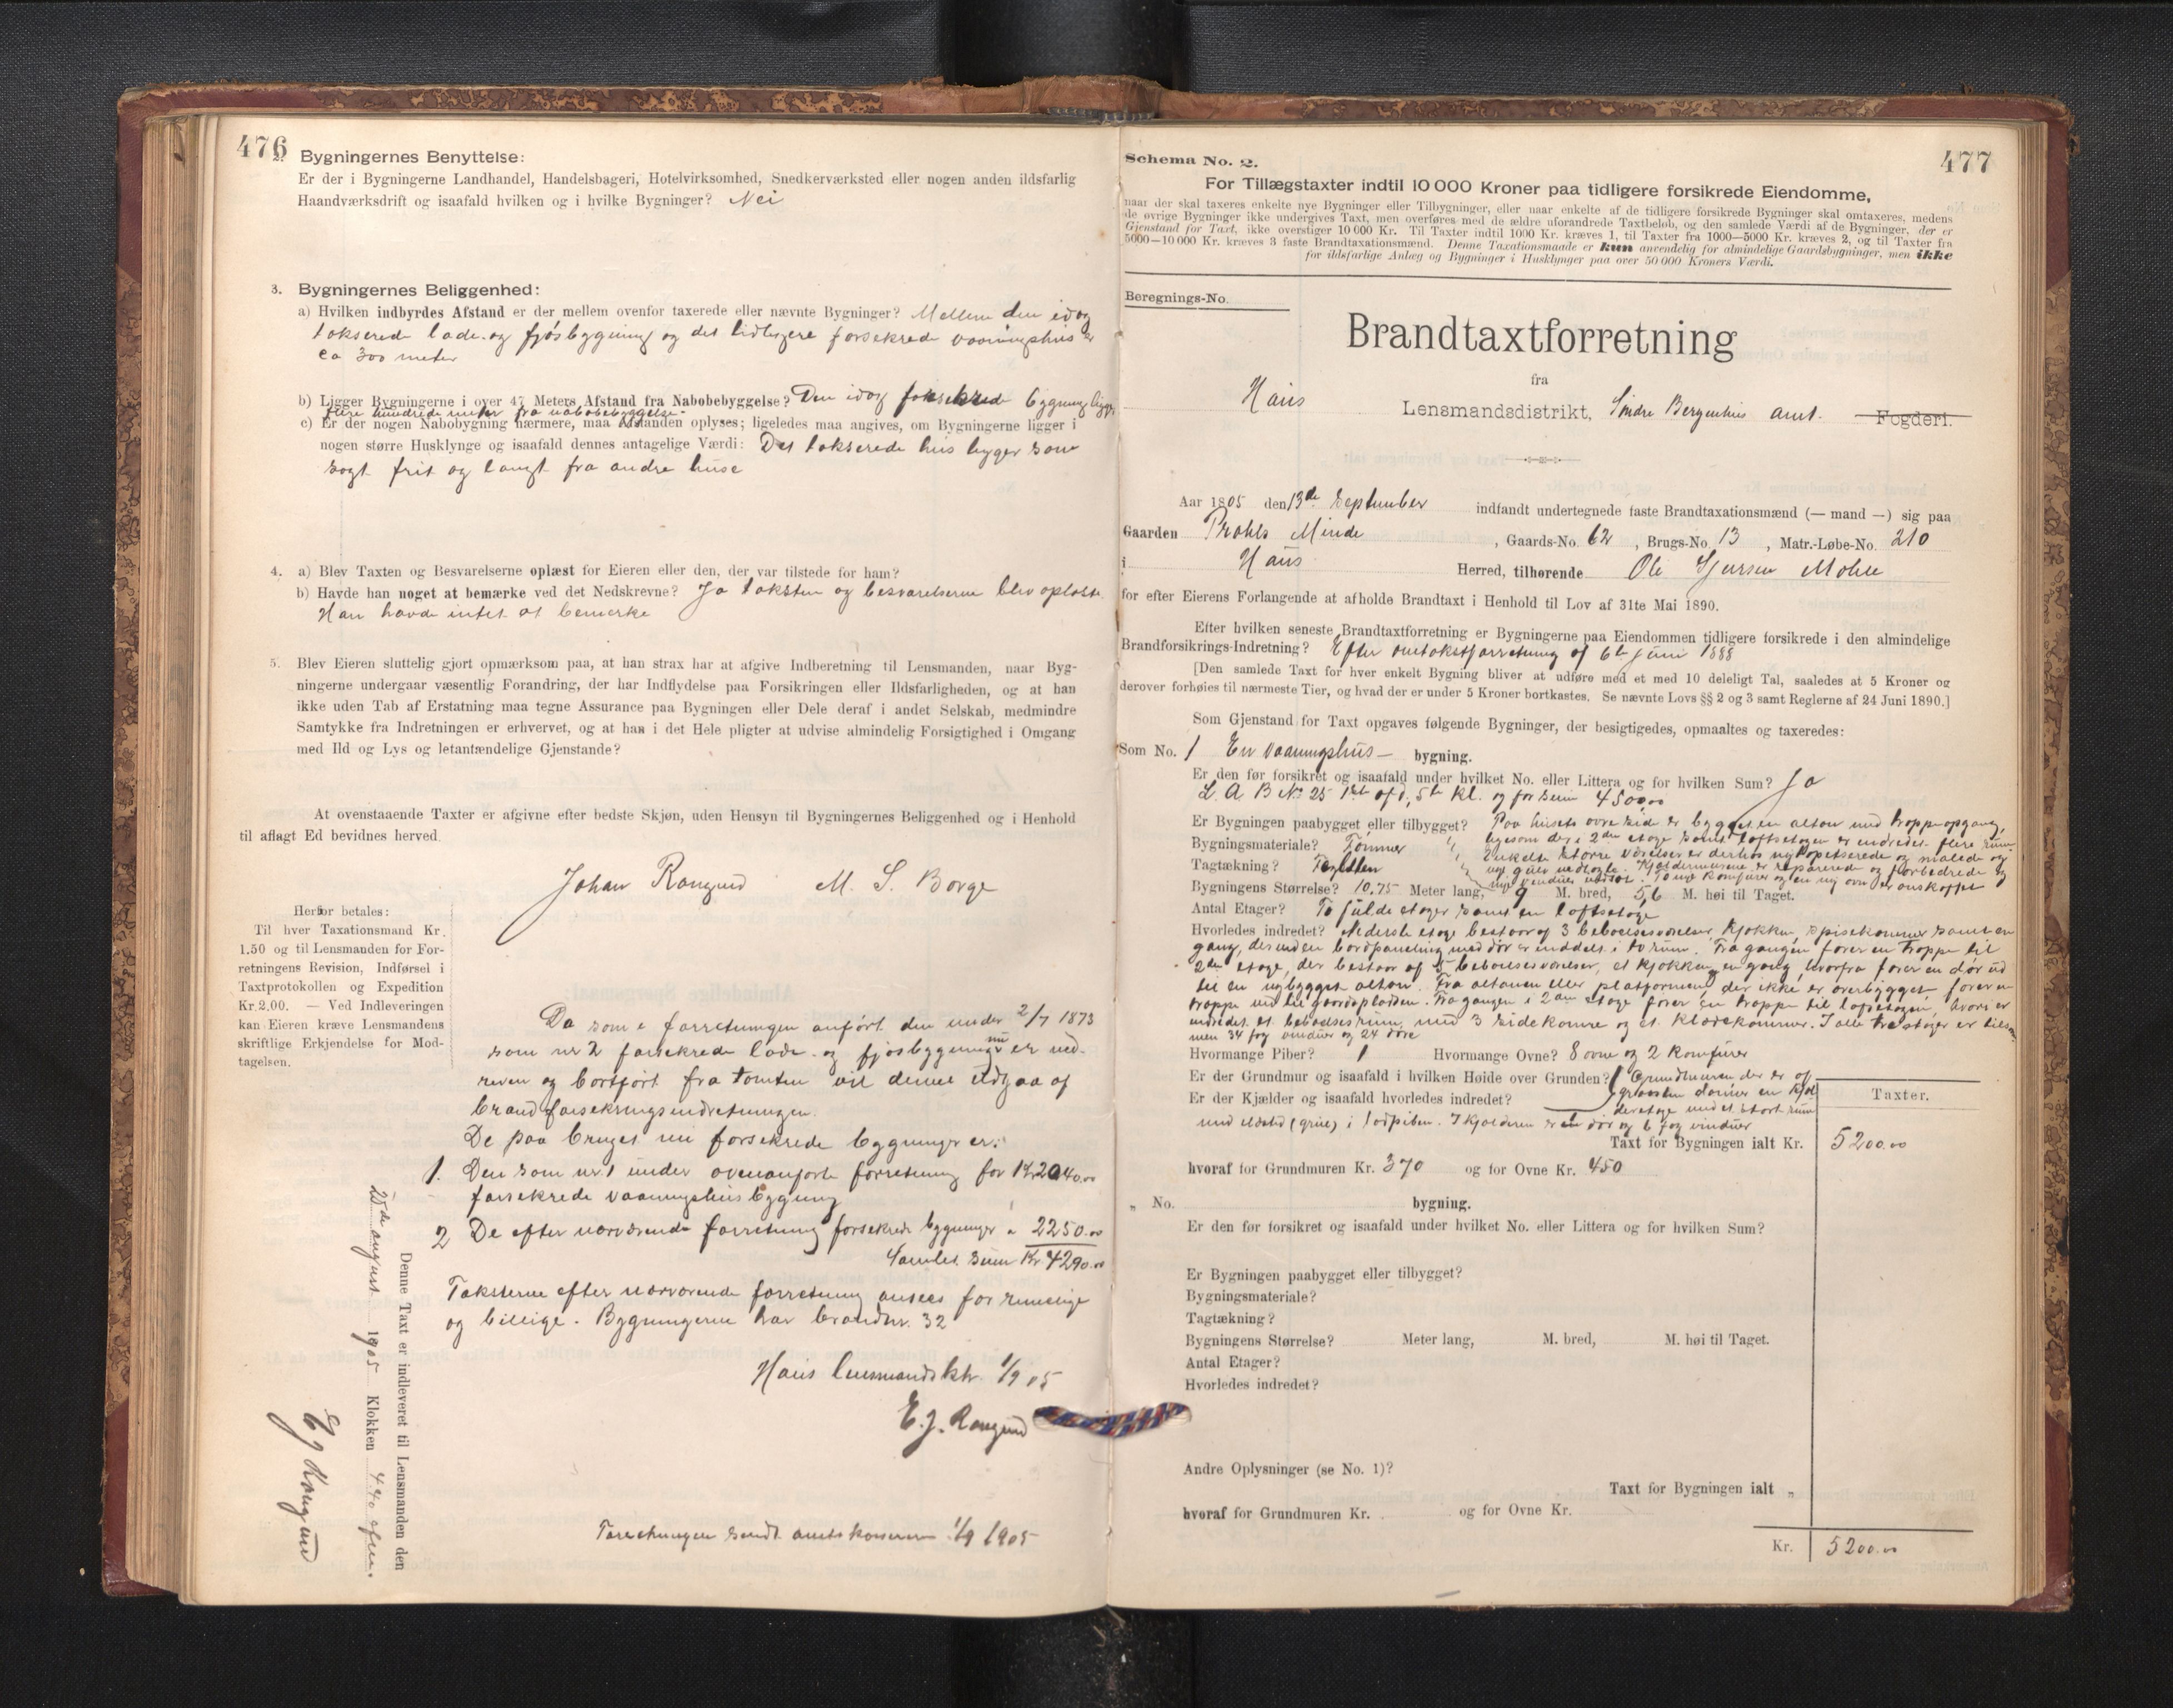 476
2. Bygningernes Benyttelse:
Er der i Bygningerne Landhandel, Handelsbageri, Hotelvirksomhed, Snedkerværksted eller nogen anden ildsfarlig
Haandværksdrift og isaafald hvilken og i hvilke Bygninger? Nei
3. Bygningernes Beliggenhed:
a) Hvilken indbyrdes Afstand er der mellem ovenfor taxerede eller nævnte Bygninger? Mellem den idag
takserede lade- og fjøsbygning og det tidligere forsekrede vaaningshus er
ca 300 meter
b) Ligger Bygningerne i over 47 Meters Afstand fra Nabobebyggelse? Den idag forsekrede bygning ligger
flere hundrede meter fra nabobebyggelse.
c) Er der nogen Nabobygning nærmere, maa Afstanden oplyses; ligeledes maa angives, om Bygningerne ligger i
nogen større Husklynge og isaafald dennes antagelige Værdi: Det takserede hus ligger som
sagt frit og langt fra andre huse
4. a) Blev Taxten og Besvarelserne oplæst for Eieren eller den, der var tilstede for ham?
b) Havde han noget at bemærke ved det Nedskrevne? Ja taksten og besvarelserne blev oplæste.
Han havde intet at bemerke
5. Blev Eieren sluttelig gjort opmærksom paa, at han strax har at afgive Indberetning til Lensmanden, naar Byg-
ningerne undergaar væsentlig Forandring, der har Indflydelse paa Forsikringen eller Ildsfarligheden, og at han
ikke uden Tab af Erstatning maa tegne Assurance paa Bygningen eller Dele deraf i andet Selskab, medmindre
Samtykke fra Indretningen er erhvervet, og at han i det Hele pligter at udvise almindelig Forsigtighed i Omgang
med Ild og Lys og letantændelige Gjenstande?
At ovenstaaende Taxter er afgivne efter bedste Skjøn, uden Hensyn til Bygningernes Beliggenhed og i Henhold
til aflagt Ed bevidnes herved.
Johan Romgund M. S. Borge
Herfor betales:
Til hver Taxationsmand Kr.
1.50 og til Lensmanden for For-
retningens Revision, Indførsel i
Taxtprotokollen og Expedition
Kr. 2.00. — Ved Indleveringen
kan Eieren kræve Lensmandens
skriftlige Erkjendelse for Mod-
tagelsen.
Da som i forretningen anført den under 2/7 1873
som nr 2 forsekrede lade- og fjøsbygning nu er ned-
reven og bortført fra tomten vil denne udgaa af
brandforsekringsindretningen.
De paa bruget nu forsekrede bygninger er:
1. Den som nr 1 under ovenanførte forretning for Kr 2040.00
forsekrede vaaningshusbygning
2 De efter nærværende forretning forsekrede bygninger " 2250.00
Samlet sum Kr 4290.00
Taksterne efter nærværende forretning ansees for rimelige
og billige. Bygningerne har brandnr. 32
Haus lensmandsktr. 1/9 05
E. J. Romgund
Forretningen sendt amtskasseren 1/9 1905
Denne Taxt er indleveret til Lensmanden den
25de august 1905 Klokken 4 40 efm.
E J Romgund
477
Schema No. 2.
For Tillægstaxter indtil 10 000 Kroner paa tidligere forsikrede Eiendomme,
naar der skal taxeres enkelte nye Bygninger eller Tilbygninger, eller naar enkelte af de tidligere forsikrede Bygninger skal omtaxeres, medens
de øvrige Bygninger ikke undergives Taxt, men overføres med de ældre uforandrede Taxtbeløb, og den samlede Værdi af de Bygninger, der er
Gjenstand for Taxt, ikke overstiger 10 000 Kr. Til Taxter indtil 1000 Kr. kræves 1, til Taxter fra 1000—5000 Kr. kræves 2, og til Taxter fra
5000—10 000 Kr. kræves 3 faste Brandtaxationsmænd. Denne Taxationsmaade er kun anvendelig for almindelige Gaardsbygninger, men ikke
for ildsfarlige Anlæg og Bygninger i Husklynger paa over 50 000 Kroners Værdi.
Beregnings-No.
Brandtaxtforretning
fra
Haus Lensmandsdistrikt, Søndre Bergenhus amt. Fogderi.
Aar 1805 den 13de September indfandt undertegnede faste Brandtaxationsmænd (— mand —) sig paa
Gaarden Minde, Gaards-No. 62, Brugs-No. 13, Matr.-Løbe-No. 210
i Haus Herred, tilhørende Ole Sjursen
for efter Eierens Forlangende at afholde Brandtaxt i Henhold til Lov af 31te Mai 1890.
Efter hvilken seneste Brandtaxtforretning er Bygningerne paa Eiendommen tidligere forsikrede i den almindelige
Brandforsikrings-Indretning? Efter omtakstforretning af 6te juni 1888
[Den samlede Taxt for hver enkelt Bygning bliver at udføre med et med 10 deleligt Tal, saaledes at 5 Kroner og
derover forhøies til nærmeste Tier, og hvad der er under 5 Kroner bortkastes. Se nævnte Lovs §§ 2 og 3 samt Reglerne af 24 Juni 1890.]
Som Gjenstand for Taxt opgaves følgende Bygninger, der besigtigedes, opmaaltes og taxeredes:
Som No. 1 En vaaningshus- bygning.
Er den før forsikret og isaafald under hvilket No. eller Littera og for hvilken Sum? Ja
L. A B No 25 5te kl. og for sum 4500.00
Er Bygningen paabygget eller tilbygget? Paa husets øvre side er bygget en altan med trappeopgang,
Bygningsmateriale? Tømmer ligesom der i 2den etage samt loftsetagen er endrede flere rum
Tagtækning? Teglsten Enkelte større værelser er derhos nytapetserede og malede og
nye gulv indlagte. Kjældermurene er reparerede og forbedrede og
Bygningens Størrelse? 10.75 Meter lang, 9 M. bred, 5,6 M. høi til Taget.
nye vinduer indsat. 10 nye komfurer og en ny ovn er anskaffet
Antal Etager? To fulde etager samt en loftsetage
Hvorledes indrettet? Nederste etage bestaar af 3 beboelsesværelser, kjøkken, spisekammer samt en
gang, der med en bordpaneling med dør er inddelt i to rum. Fra gangen fører en trappe til
2den etage, der bestaar af 5 beboelsesværelser, et kjøkken, en gang hvorfra fører en dør ud
til en nybygget altan. Fra altanen eller platformen, der ikke er overbygget fører en
trappe ned til gaardspladsen. Fra gangen i 2den etage fører en trappe til loftsetagen, hvori er
indredet et beboelsesrum med 3 sidekamre og et klædekammer. I alle tre etager er tilsam
men 34 fag vinduer og 24 døre
Hvormange Piber? 1 Hvormange Ovne? 8 ovne og 2 komfurer
Er der Grundmur og isaafald i hvilken Høide over Grunden? Grundmuren der er af
Er der Kjælder og isaafald hvorledes indredet? graasten danner en kjel
deretage med et stort rum
med ildsted (grue) i lodpiben. I kjelderen er en dør og 6 fag vinduer
Taxter.
Taxt for Bygningen ialt Kr. 5200.00
hvoraf for Grundmuren Kr. 370 og for Ovne Kr. 450
" No. bygning.
Er den før forsikret og isaafald under hvilket No. eller Littera og for hvilken Sum?
Er Bygningen paabygget eller tilbygget?
Bygningsmateriale?
Tagtækning?
Bygningens Størrelse? Meter lang, M. bred, M. høi til Taget.
Antal Etager?
Hvorledes indredet?
Andre Oplysninger (se No. 1)?
Taxt for Bygningen ialt "
hvoraf for Grundmuren Kr. og for Ovne Kr.
Kr. 5200.00